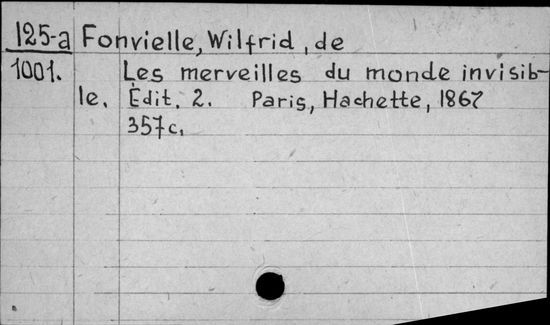 125-a Fonvielle, Wilfrid, de
1001. Les merveilles du monde invisib-
le. Édit. 2. Paris, Hachette, 1867
357c.